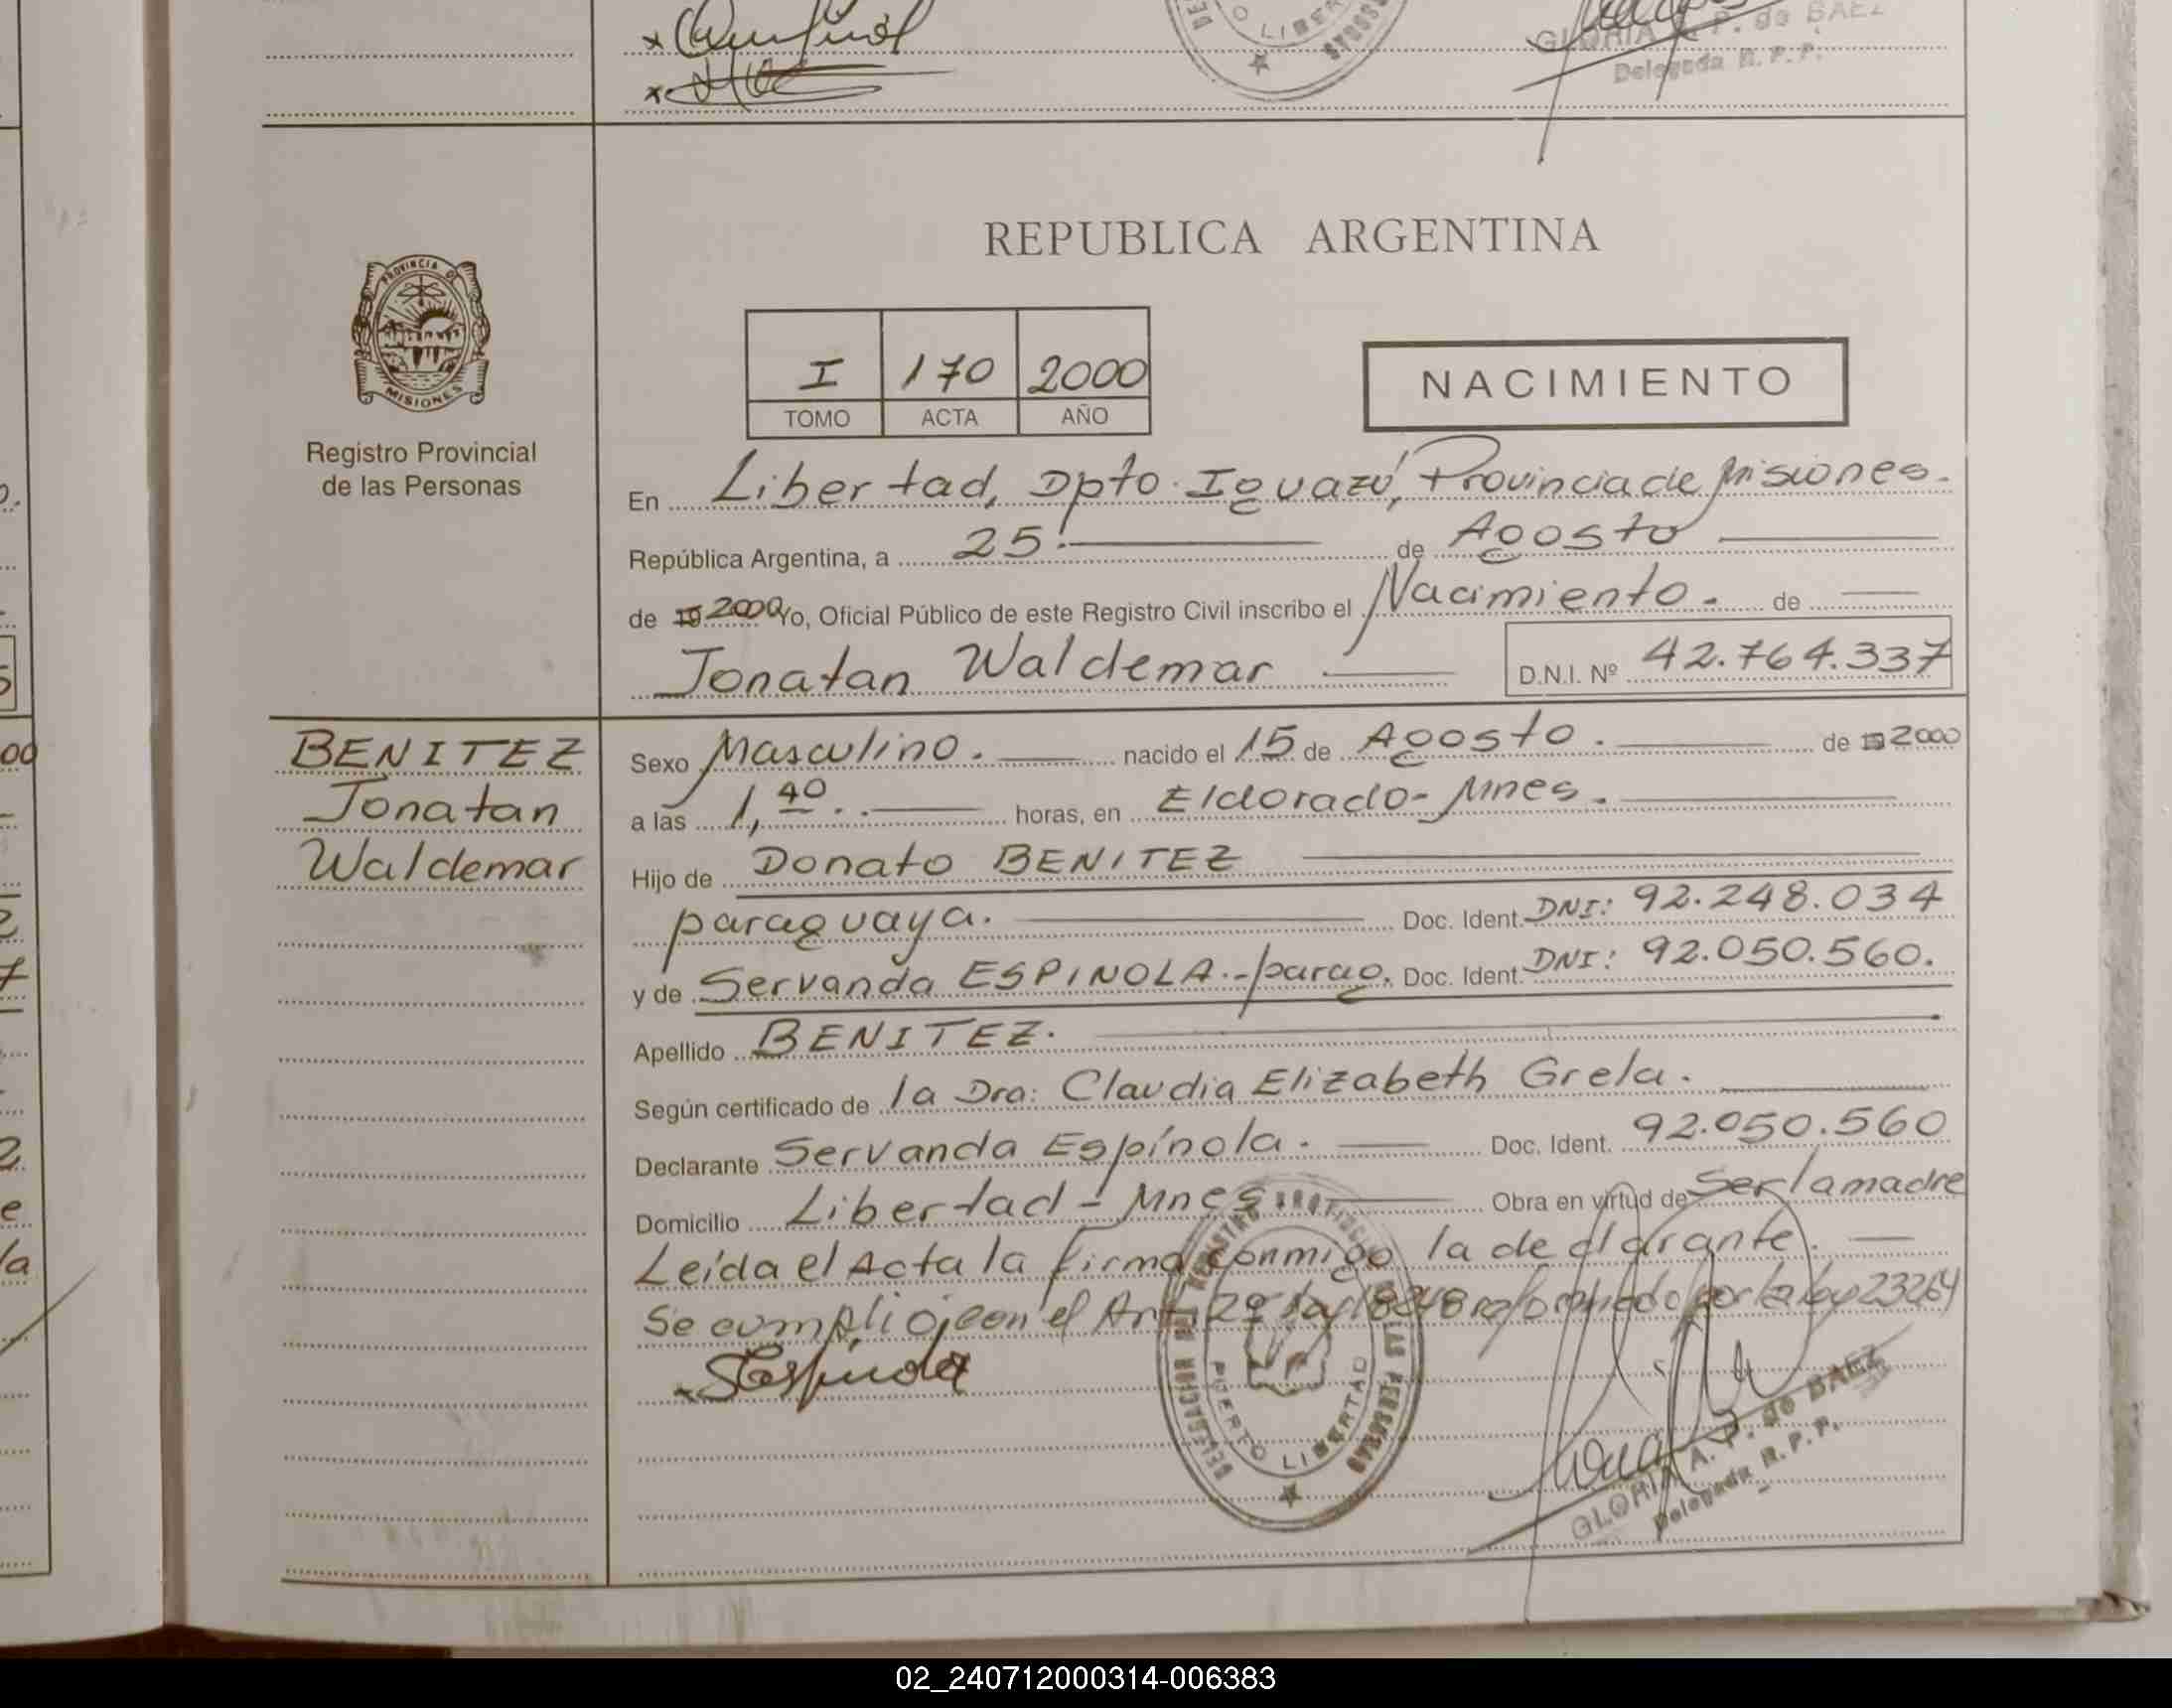 GLORIA A. P. de BAEZ
Delegada R. P. P.
PROVINCIA DE
MISIONES
Registro Provincial
de las Personas
REPUBLICA ARGENTINA
I 170 2000
TOMO ACTA AÑO
NACIMIENTO
En Libertad, Dpto. Iguazú, Provincia de Misiones.
República Argentina, a 25.- de Agosto
de 19 2000 Yo, Oficial Público de este Registro Civil inscribo el Nacimiento. de
Jonatan Waldemar D.N.I. Nº 42.764.337
BENITEZ
Jonatan
Waldemar
Sexo Masculino. nacido el 15 de Agosto. de 19 2000
a las 1,40. horas, en Eldorado- Mnes.
Hijo de Donato BENITEZ
paraguaya. Doc. Ident. DNI: 92.248.034
y de Servanda ESPINOLA.-parag. Doc. Ident. DNI: 92.050.560.
Apellido BENITEZ.
Según certificado de la Dra: Claudia Elizabeth Grela.
Declarante Servanda Espínola. Doc. Ident. 92.050.560
Domicilio Libertad - Mnes Obra en virtud de Ser la madre
Leída el Acta la firma conmigo la declarante.
Se cumplió con el Art. 2º Ley 18248 reformado por la ley 23264
SEspinola
DELEGACION DEL REGISTRO PROVINCIAL DE LAS PERSONAS
PUERTO LIBERTAD
GLORIA A. P. de BAEZ
Delegada R. P. P.
02_240712000314-006383